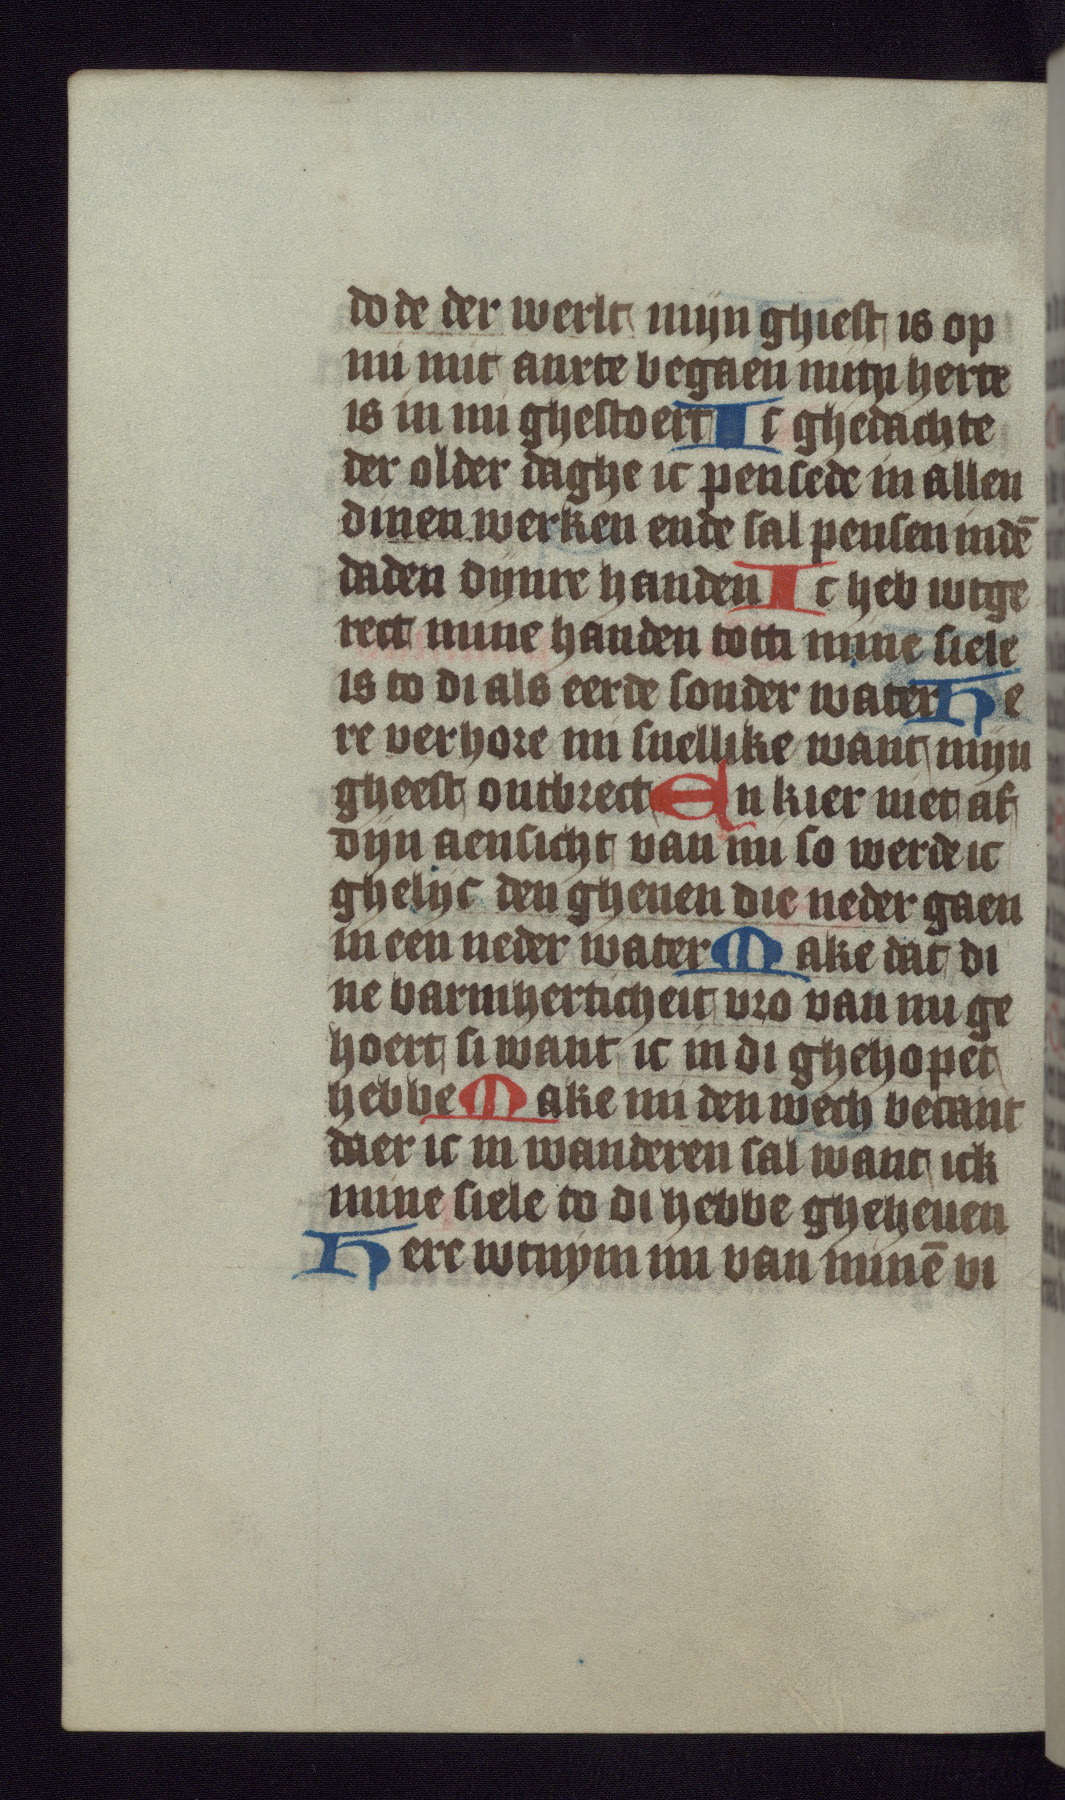 dode der werlt mijn ghiest is op
mi mit anxte begaen mijn herte
is in mi ghestoert Ic ghedachte
der older daghe ic pensede in allen
dinen werken ende sal pensen indē
daden dijnre handen Ic heb wtge
rect mine handen totti mine siele
is to di als eerde sonder water He
re verhore mi snellike want mijn
gheest ontbrect En kier niet af
dijn aensicht van mi so werde ic
ghelijc den ghenen die neder gaen
in een neder water Make dat di
ne barmherticheit vro van mi ge
hoert si want ic in di ghehopet
hebbe Make mi den wech becant
daer ic in wanderen sal want ick
mine siele to di hebbe gheheuen
Here mi van minē vi